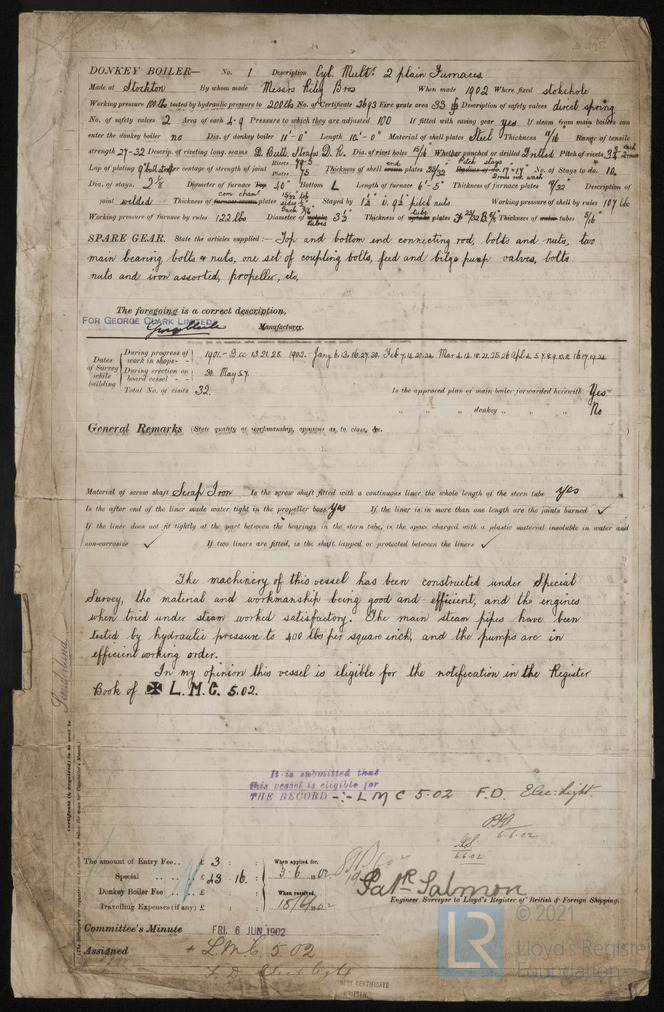 DONKEY BOILER— No. 1 Description Cyl. Mult. 2 plain Furnaces
Made at Stockton By whom made Messrs Riley Bros When made 1902 Where fixed stokehole
Working pressure 100 lbs tested by hydraulic pressure to 200 lbs No. of Certificate 2693 Fire grate area 33 Description of safety valves direct spring
No. of safety valves 2 Area of each 4.9 Pressure to which they are adjusted 100 If fitted with easing gear yes If steam from main boilers can
enter the donkey boiler no Dia. of donkey boiler 11'-0" Length 10'-0" Material of shell plates Steel Thickness 11/16" Range of tensile
strength 27-32 Descrip. of riveting long. seams D. Butt. Straps D. R. Dia. of rivet holes 15/16" Whether punched or drilled Drilled Pitch of rivets
Lap of plating Per centage of strength of joint Rivets Plates 75 Thickness of shell end plates No. of Stays to do. 10
Dia. of stays. 2 1/8 Diameter of furnace 40" Bottom L Length of furnace 6'-5" Thickness of furnace plates Description of
joint welded Thickness of com. cham. plates Stayed by pitch nuts Working pressure of shell by rules 107 lbs
Working pressure of furnace by rules 122 lbs Diameter of tubes 3 1/2" Thickness of tube plates Thickness of tubes 5/16"
SPARE GEAR. State the articles supplied:— Top and bottom end connecting rod, bolts and nuts, two
main bearing bolts & nuts, one set of coupling bolts, feed and bilge pump valves, bolts
nuts and iron assorted, propeller, etc,
The foregoing is a correct description,
FOR GEORGE CLARK LIMITED
Manufacturer.
Dates of Survey while building
During progress of work in shops- - 1901.- Dec. 13. 21. 28. 1902. Jany 6. 13. 16. 27. 30. Feb 7. 14. 20. 24. Mar 4. 14. 18. 21. 25. 26
During erection on board vessel - - 30. May 5.7.
Total No. of visits 32. Is the approved plan of main boiler forwarded herewith Yes
" " " donkey " " " No
General Remarks (State quality of workmanship, opinions as to class, &c.
Material of screw shaft Scrap Iron Is the screw shaft fitted with a continuous liner the whole length of the stern tube yes
Is the after end of the liner made water tight in the propeller boss yes If the liner is in more than one length are the joints burned ✓
If the liner does not fit tightly at the part between the bearings in the stern tube, is the space charged with a plastic material insoluble in water and
non-corrosive ✓ If two liners are fitted, is the shaft lapped or protected between the liners ✓
The machinery of this vessel has been constructed under Special
Survey, the material and workmanship being good and efficient, and the engines
when tried under steam worked satisfactory. The main steam pipes have been
tested by hydraulic pressure to 400 lbs per square inch, and the pumps are in
efficient working order.
In my opinion this vessel is eligible for the notification in the Register
Book of ✠ L.M.C. 5.02.
Sunderland
It is submitted that
this vessel is eligible for
THE RECORD -:- LMC 5.02 F.D. Elec. Light.
6.6.02
6.6.02
The amount of Entry Fee.. £ 3 : : When applied for,
Special .. .. .. £ 23 16. 3.6.1902
Donkey Boiler Fee .. .. £ : : When received,
Travelling Expenses (if any) £ : : 18/6/1902
Patk. Salmon
Engineer Surveyor to Lloyd's Register of British & Foreign Shipping.
Committee's Minute FRI. 6 JUN 1902
Assigned + LMC 5.02
F.D. Elect light
© 2021
LR
Lloyd's Register
Foundation